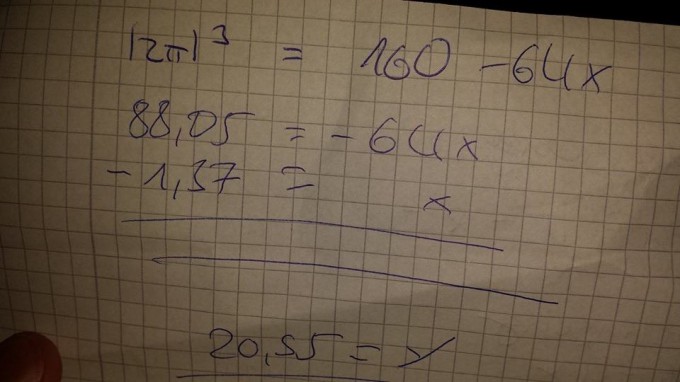 |2π|³ = 160 - 64x
88,05 = - 64x
- 1,37 = x
20,55 = y